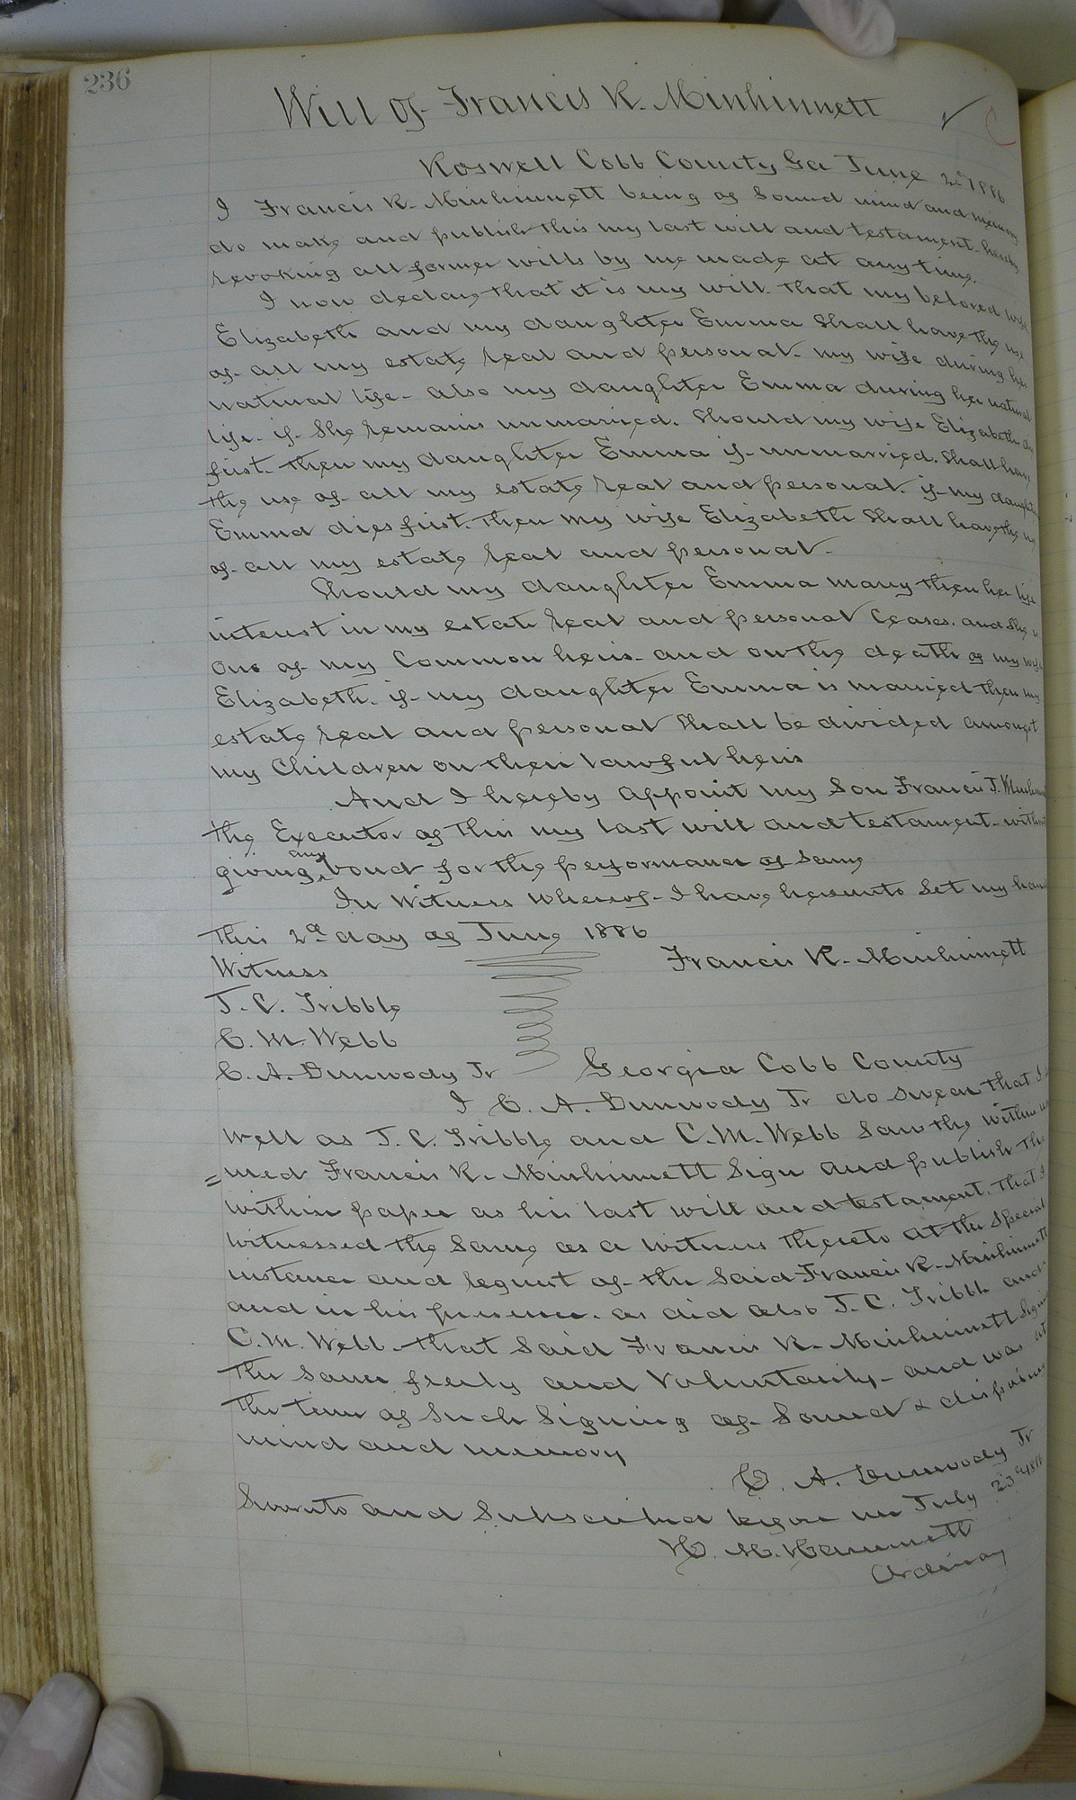 236
Will of Francis R. Minhinnett
Roswell Cobb County Ga June 2d 1886
I Francis R. Minhinnett being of Sound mind and memory
do make and publish this my last will and testament hereby
revoking all former wills by me made at any time.
I now declare that it is my will that my beloved wife
Elizabeth and my daughter Emma Shall have the use
of all my estate real and personal. my wife during her
natural life. also my daughter Emma during her natural
life. if She remains unmarried. Should my wife Elizabeth die
first. then my daughter Emma if unmarried. Shall have
the use of all my estate real and personal. if my daughter
Emma dies first. then my wife Elizabeth Shall have the use
of all my estate real and personal.
Should my daughter Emma marry then her life
interest in my estate real and personal Ceases. and She is
one of my Common heirs and on the death of my wife
Elizabeth. if my daughter Emma is married then my
estate real and personal Shall be divided amongst
my Children or their lawful heirs
And I hereby appoint my Son Francis T. Minhinnett
the Executor of this my last will and testament without
giving any bond for the performance of Same
In Witness Whereof I have hereunto Set my hand
this 2d day of June 1886
Witness
Francis R. Minhinnett
T. C. Tribble
C. M. Webb
C. A. Dunwody Jr
Georgia Cobb County
I C. A. Dunwody Jr do Swear that I as
well as T. C. Tribble and C. M. Webb Saw the within na
=med Francis R. Minhinnett Sign and publish the
within paper as his last will and testament. that I
witnessed the Same as a witness thereto at the Special
instance and request of the Said Francis R. Minhinnett
and in his presence. as did also T. C. Tribble and
C. M. Webb. that Said Francis R. Minhinnett Signed
the Same freely and Voluntarily and was at
the time of Such Signing of Sound & disposing
mind and memory
C. A. Dunwody Jr
Sworn to and Subscribed before me July 23d
H. M. Hammett
Ordinary